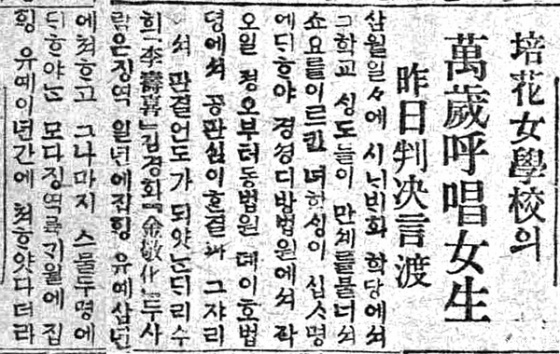 培花女學校의
萬歲呼唱女生
昨日判決言渡
삼월일々에 시ᄂᆡᄇᆡ화 학당에셔
그학교 ᄉᆡᆼ도들이 만셰를불너셔
쇼요를이르킨 녀학ᄉᆡᆼ이 십ᄉ명
에ᄃᆡᄒᆞ야 경셩디방법원에셔
오일 졍오부터동법원 뎨이호법
뎡에셔 공판 결과 그자리
셔 판결언도가 되얏ᄂᆞᆫᄃᆡ리수
희「李壽喜」김경화「金敬化」두사
람은징역 일년에집ᄒᆡᆼ 유예삼년
에쳐ᄒᆞ고 그나마지 스물두명에
ᄃᆡᄒᆞ야ᄂᆞᆫ 모다징역륙기월에 집
ᄒᆡᆼ 유예이년간에 쳐ᄒᆞ얏다더라